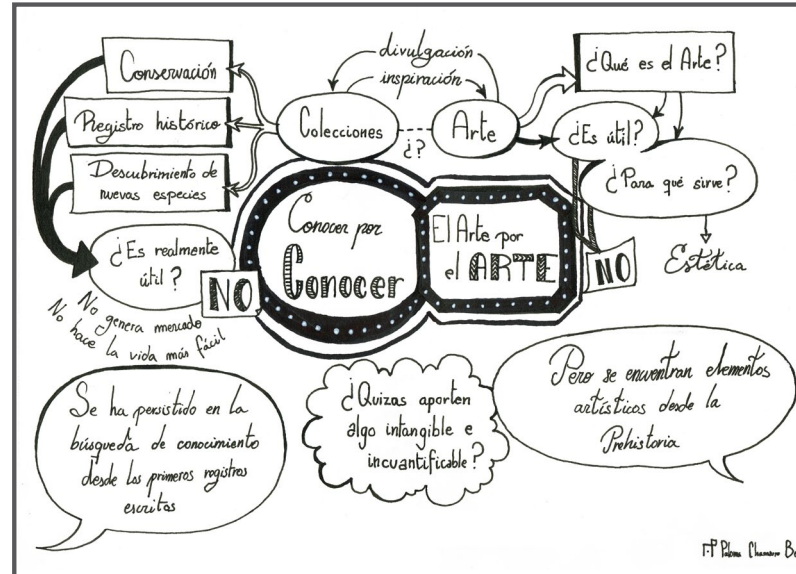 Conservación
Registro histórico
Descubrimiento de
nuevas especies
¿Es realmente
útil?
NO
No genera mercado
No hace la vida más fácil
divulgación
inspiración
Colecciones
¿?
Arte
¿Qué es el Arte?
¿Es útil?
¿Para qué sirve?
Estética
NO
Conocer por
Conocer
El Arte por
el ARTE
Se ha persistido en la
búsqueda de conocimiento
desde los primeros registros
escritos
¿Quizas aporten
algo intangible e
incuantificable?
Pero se encuentran elementos
artísticos desde la
Prehistoria
Paloma Chamorro